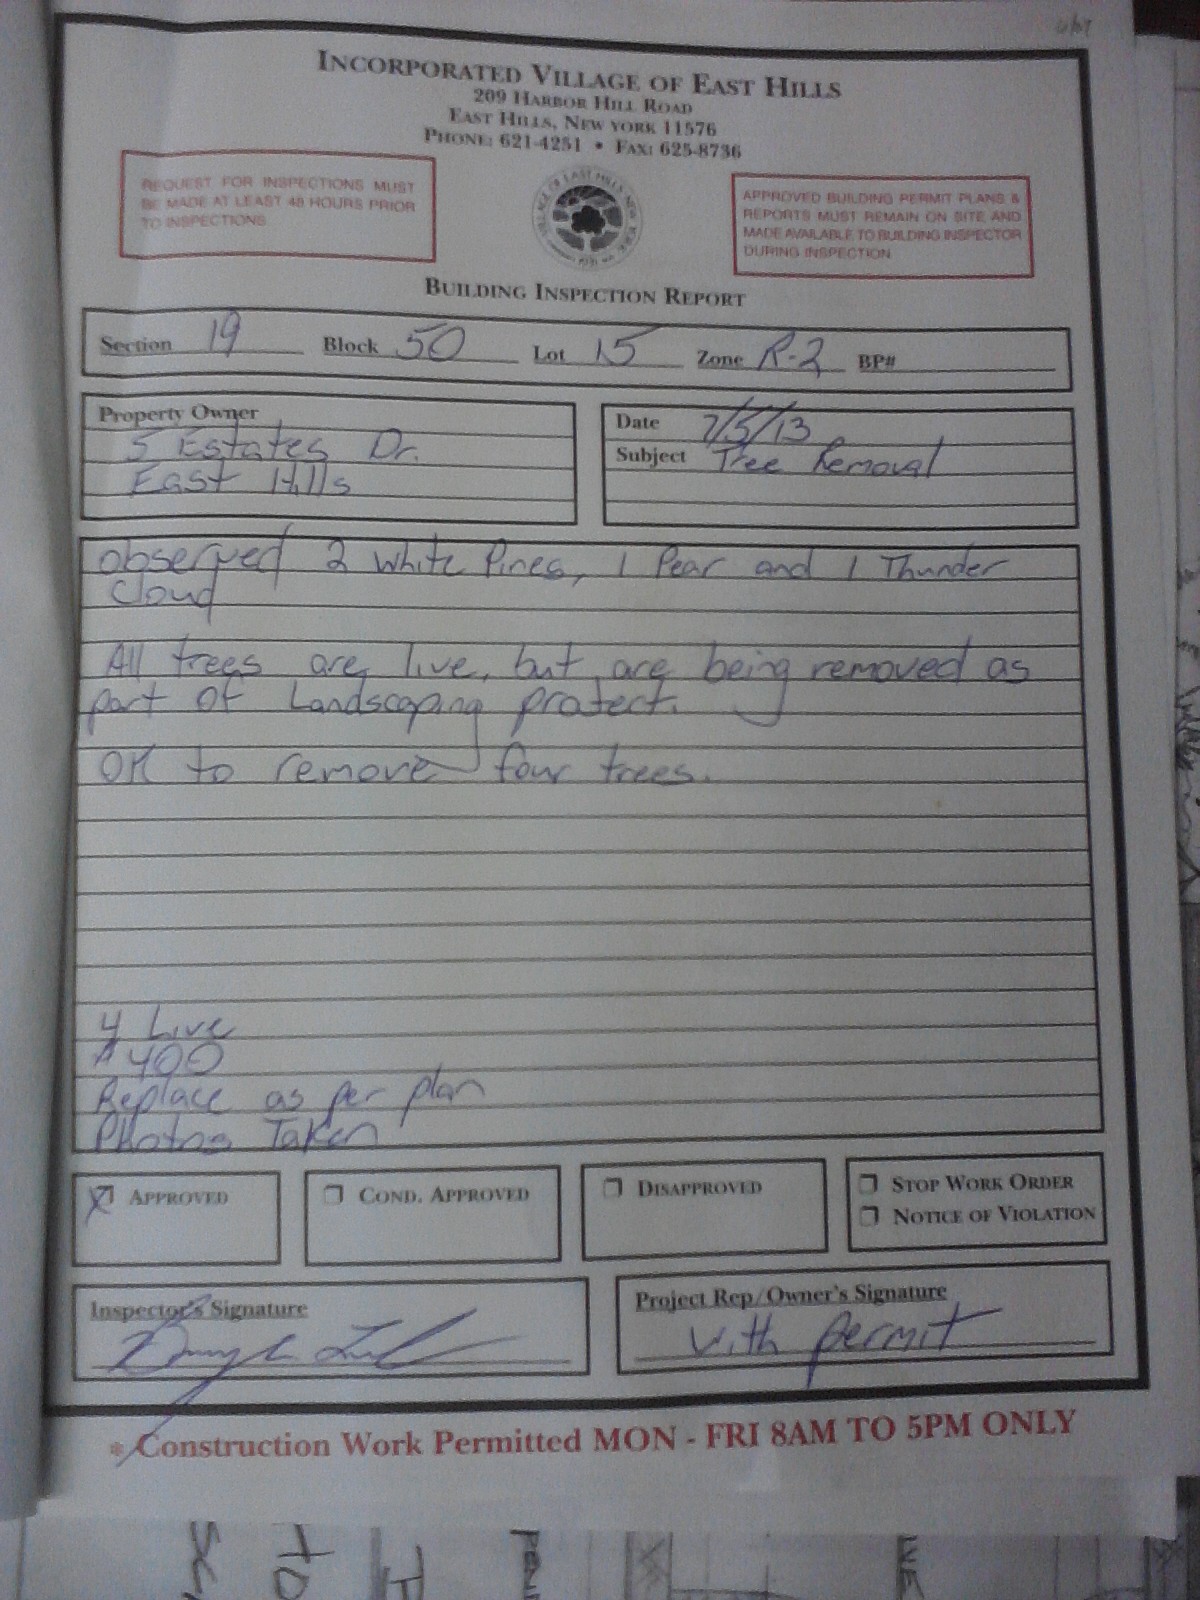 INCORPORATED VILLAGE OF EAST HILLS
209 HARBOR HILL ROAD
EAST HILLS, NEW YORK 11576
PHONE: 621-4251 • FAX: 625-8736
REQUEST FOR INSPECTIONS MUST
BE MADE AT LEAST 48 HOURS PRIOR
TO INSPECTIONS
APPROVED BUILDING PERMIT PLANS &
REPORTS MUST REMAIN ON SITE AND
MADE AVAILABLE TO BUILDING INSPECTOR
DURING INSPECTION
BUILDING INSPECTION REPORT
Section 19 Block 50 Lot 15 Zone R-2 BP#
Property Owner
5 Estates Dr.
East Hills
Date 7/5/13
Subject Tree Removal
observed 2 White Pines, 1 Pear and 1 Thunder
Cloud
All trees are live, but are being removed as
part of Landscaping protect.
OK to remove four trees.
4 Live
$400
Replace as per plan
Photos Taken
APPROVED
COND. APPROVED
DISAPPROVED
STOP WORK ORDER
NOTICE OF VIOLATION
Inspector's Signature
Project Rep/Owner's Signature
with permit
* Construction Work Permitted MON - FRI 8AM TO 5PM ONLY